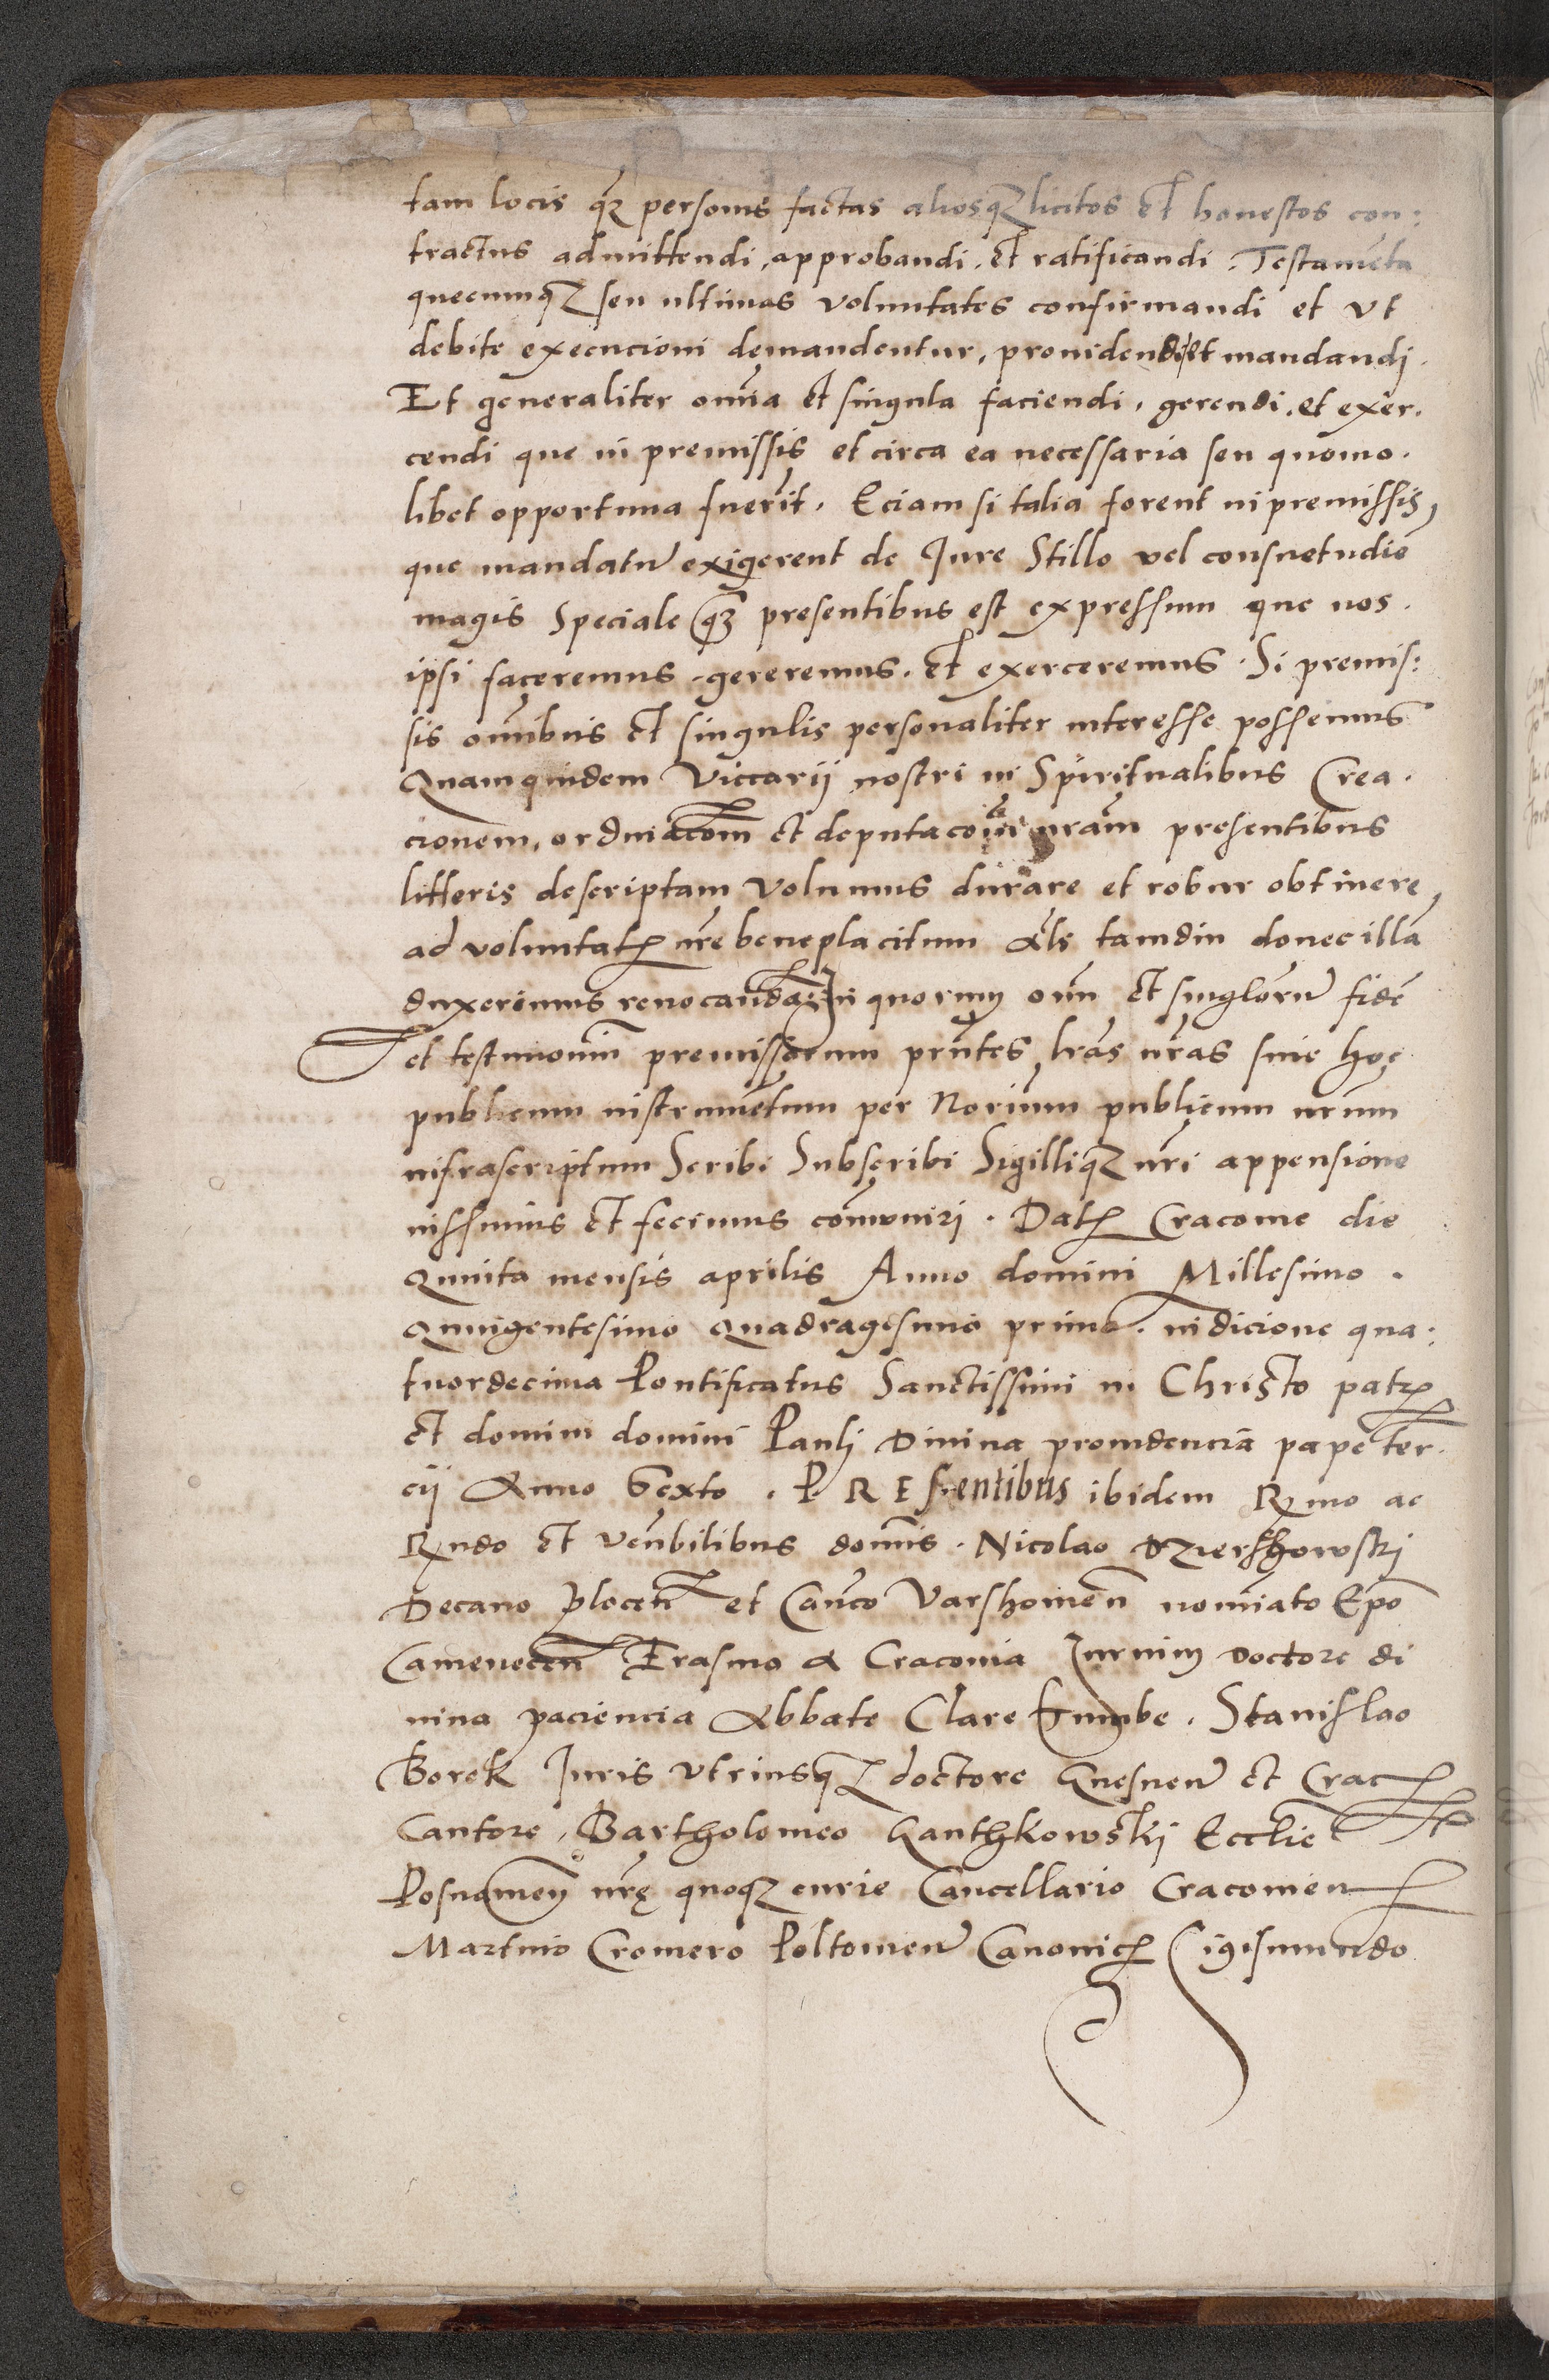 tam locis qz personis factas aliosqz licitos et honestos con:
tractus admittendi, approbandi. et ratificandi. Testamēta
quecumqz seu ultimas voluntates confirmandi et ut
debite execucioni demandentur, providendi et mandandj.
Et generaliter omnia et singula faciendi, gerendi. et exer.
cendi que in premissis et circa ea necessaria seu quomo.
libet opportuna fuerīt. Eciam si talia forent in premissis,
que mandatū exigerent de Jure Stillo vel consuetudiē
magis Speciale qz presentibus est expressum que nos.
ipsi faceremus. gereremus. et exerceremus. Si premis:
sis omnībus et singulis personaliter interesse possemus
Quamquidem Viccarij nostri in Spiritualibus Crea.
cionem, ordinacōm et deputacōm nram presentibus
litteris descriptam volumus durare et robur obtinere,
ad voluntatz nre beneplacitum Als tamdiu donec illā
duxerimus revocandā. In quorum oīm et singlorū fidē
et testimoniū premissorum pntes lras nras sive hoc
publicum instrumētum per Norium publicum nrum
infrascriptum Scribi Subscribi Sigilliqz nri appensione
iussimus et fecimus cōmuniri. Datz Cracovie die
Quinta mensis aprilis Anno domini Millesimo.
Quingentesimo Quadragesimo primo. indicione qua:
tuordecima Pontificatus Sanctissimi in Christo patrz
et domini domini Paulj Divina providencia pape ter.
cij Anno Sexto. PRESentibus ibidem Rmo ac
Rndo et venbilibus domīs. Nicolao Dzierzgowskj
Decano Plocen et Canco Varshovien nomiato Epo
Camenecen Erasmo a Cracovia Jurium Doctore di
vina paciencia Abbate Clare tumbe. Stanislao
Borek Juris utriusqz doctore Gnesnen et Crac
Cantore, Bartholomeo Ganthkowskj Ecclie
Posnanien nre quoqz curie Cancellario Cracovien
Martino Cromero Poltovien Canonicz Sigismundo